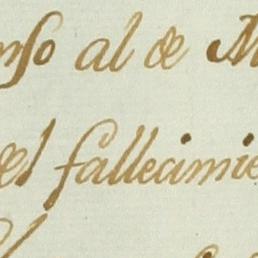 nso al de M
del fallecimie